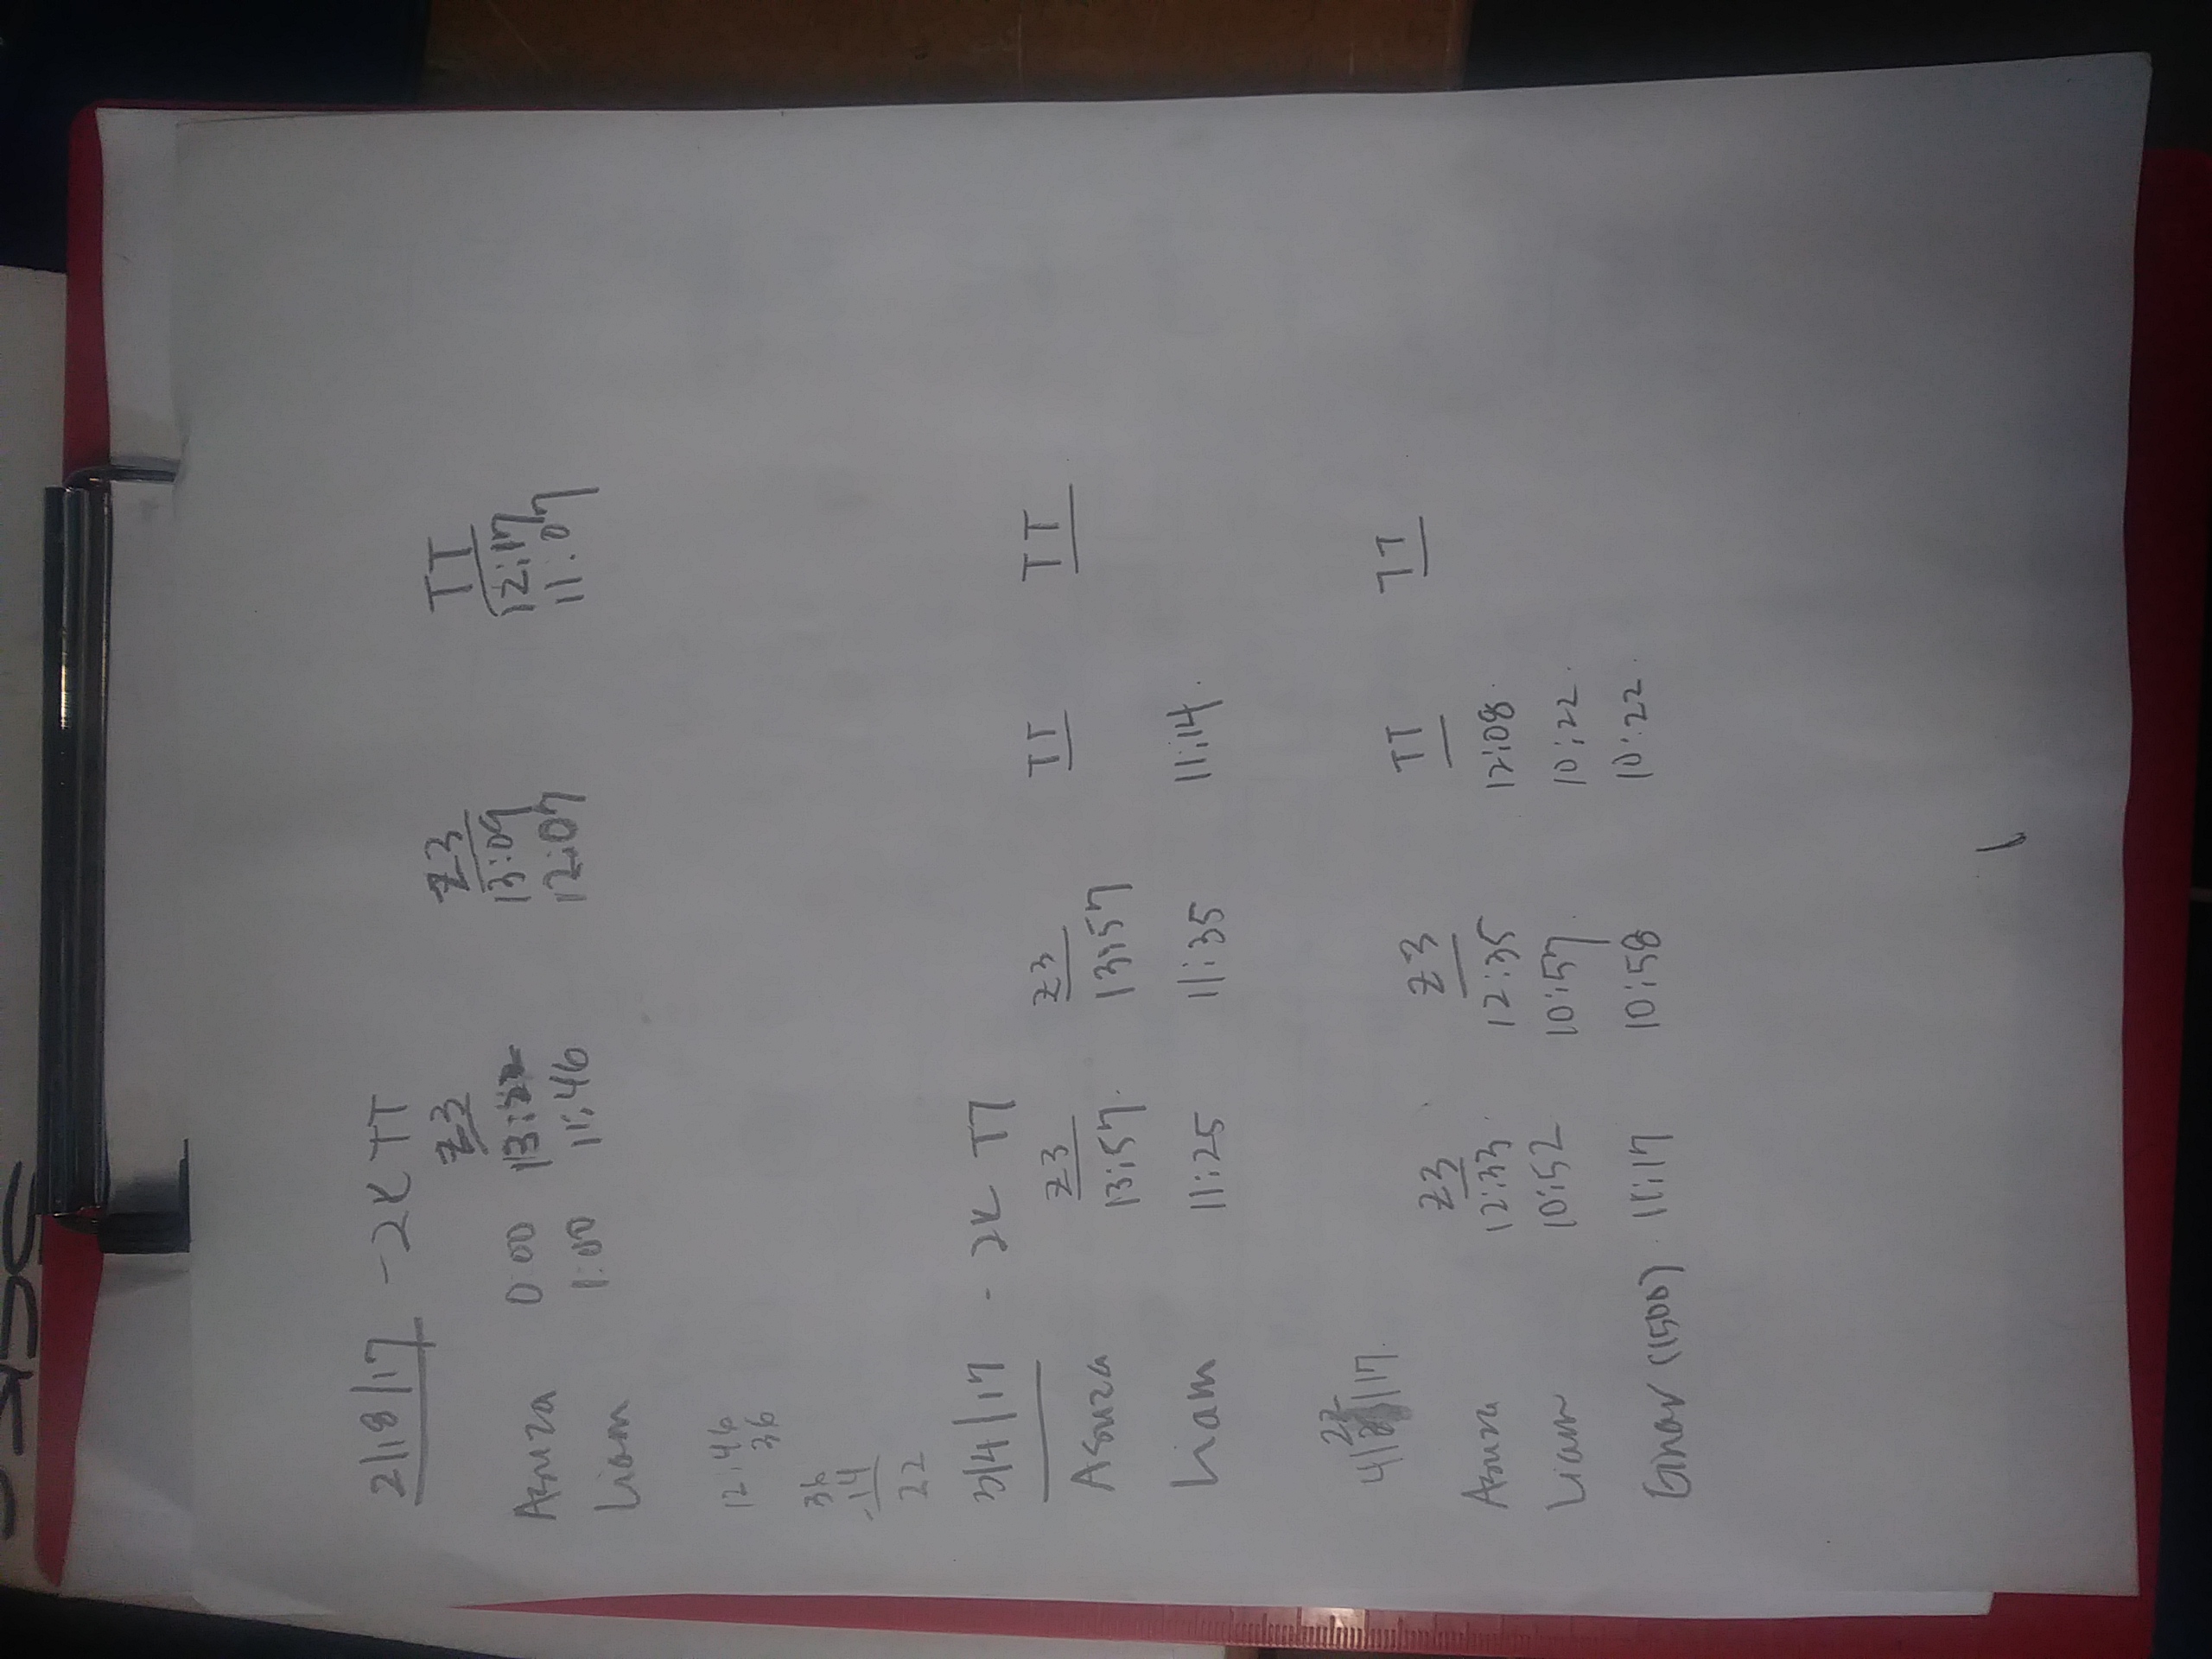 2/18/17 - 2K TT
Z3 Z3 TT
Asuza 0:00 13:09 12:17
Liam 1:00 11:46 12:07 11:07
12:46
36
36
-14
22
3/4/17 - 2K TT
Z3 Z3 TT TT
Asuza 13:57 13:57
Liam 11:25 11:35 11:14
22
4/ /17
Z3 Z3 TT TT
Asuza 12:33 12:35 12:08
Liam 10:52 10:57 10:22
(1500) 11:17 10:58 10:22